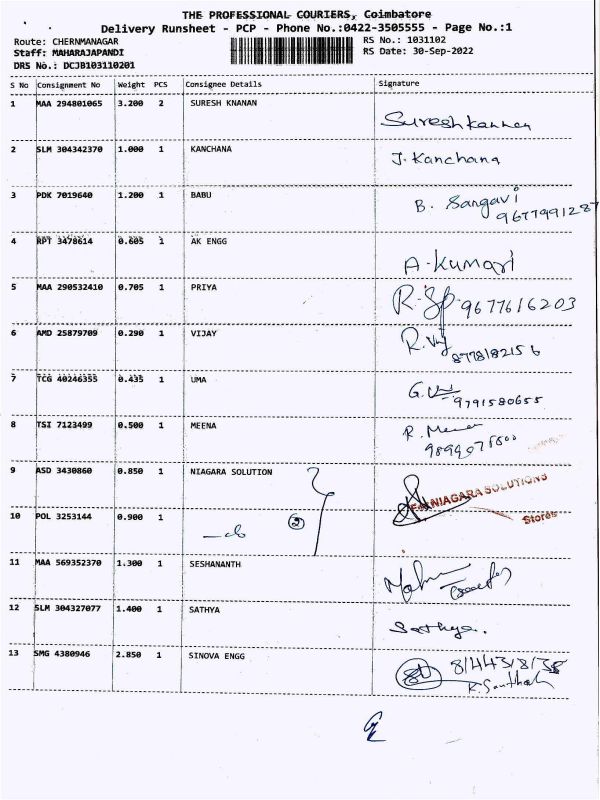 THE PROFESSIONAL COURIERS, Coimbatore
Delivery Runsheet - PCP - Phone No.:0422-3505555 - Page No.:1
Route: CHERNMANAGAR RS No.: 1031102
Staff: MAHARAJAPANDI RS Date: 30-Sep-2022
DRS No.: DCJB103110201
S No Consignment No Weight PCS Consignee Details Signature
1 MAA 294801065 3.200 2 SURESH KNANAN Sureshkannan
2 SLM 304342370 1.000 1 KANCHANA J. Kanchana
3 PDK 7019640 1.200 1 BABU B. Sangavi
9677991287
4 RPT 3478614 0.605 1 AK ENGG A-Kumari
5 MAA 290532410 0.705 1 PRIYA 9677616203
6 AMD 25879709 0.290 1 VIJAY 8778182156
7 TCG 40246355 0.435 1 UMA 9791580655
8 TSI 7123499 0.500 1 MEENA R. Meena
9 ASD 3430860 0.850 1 NIAGARA SOLUTION NIAGARA SOLUTIONS
10 POL 3253144 0.900 1 2 Stores
11 MAA 569352370 1.300 1 SESHANANTH
12 SLM 304327077 1.400 1 SATHYA Sathya.
13 SMG 4380946 2.850 1 SINOVA ENGG